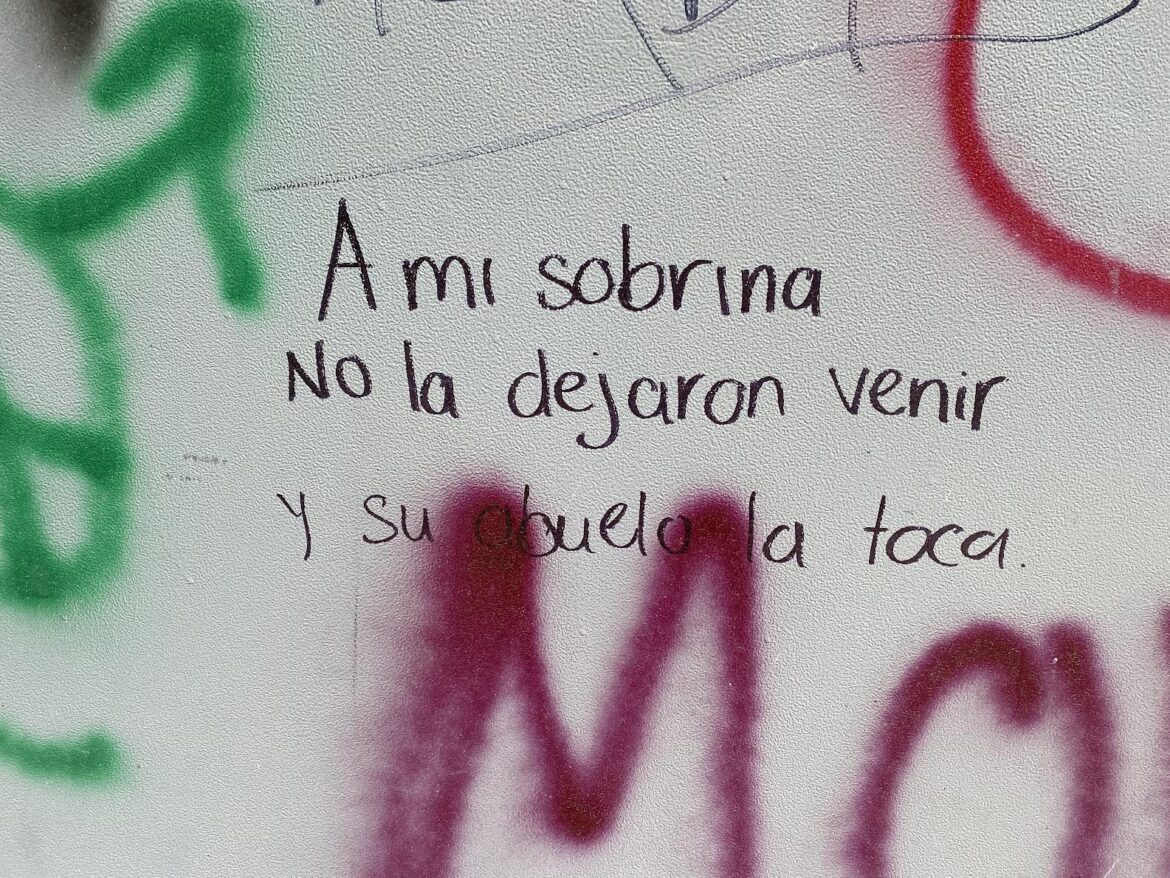 A mi sobrina
No la dejaron venir
y su abuelo la toca.
Ma